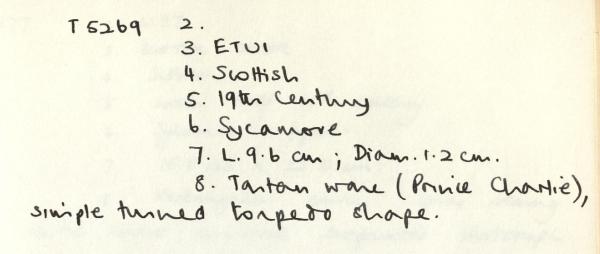 T 5269 2.
3. ETUI
4. Scottish
5. 19th Century
6. Sycamore
7. L. 9.6 cm ; Diam. 1.2 cm.
8. Tartan ware (Prince Charlie),
simple turned torpedo shape.